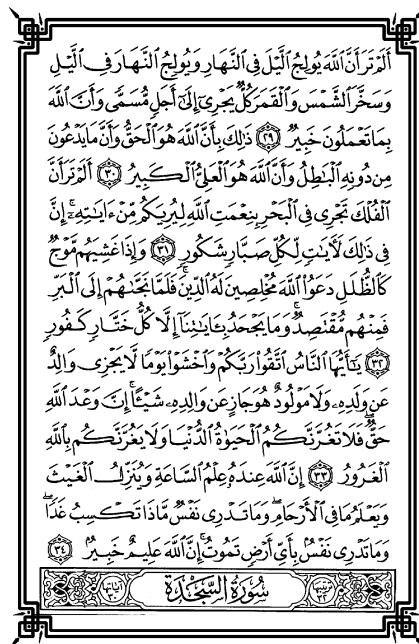 أَلَمْ تَرَ أَنَّ ٱللَّهَ يُولِجُ ٱلَّيْلَ فِى ٱلنَّهَارِ وَيُولِجُ ٱلنَّهَارَ فِى ٱلَّيْلِ
وَسَخَّرَ ٱلشَّمْسَ وَٱلْقَمَرَ كُلٌّ يَجْرِىٓ إِلَىٰٓ أَجَلٍ مُّسَمًّى وَأَنَّ ٱللَّهَ
بِمَا تَعْمَلُونَ خَبِيرٌ ٢٩ ذَٰلِكَ بِأَنَّ ٱللَّهَ هُوَ ٱلْحَقُّ وَأَنَّ مَا يَدْعُونَ
مِن دُونِهِ ٱلْبَٰطِلُ وَأَنَّ ٱللَّهَ هُوَ ٱلْعَلِىُّ ٱلْكَبِيرُ ٣٠ أَلَمْ تَرَ أَنَّ
ٱلْفُلْكَ تَجْرِى فِى ٱلْبَحْرِ بِنِعْمَتِ ٱللَّهِ لِيُرِيَكُم مِّنْ ءَايَٰتِهِۦٓ ۚ إِنَّ
فِى ذَٰلِكَ لَءَايَٰتٍ لِّكُلِّ صَبَّارٍ شَكُورٍ ٣١ وَإِذَا غَشِيَهُم مَّوْجٌ
كَٱلظُّلَلِ دَعَوُا۟ ٱللَّهَ مُخْلِصِينَ لَهُ ٱلدِّينَ فَلَمَّا نَجَّىٰهُمْ إِلَى ٱلْبَرِّ
فَمِنْهُم مُّقْتَصِدٌ ۚ وَمَا يَجْحَدُ بِـَٔايَٰتِنَآ إِلَّا كُلُّ خَتَّارٍ كَفُورٍ
٣٢ يَٰٓأَيُّهَا ٱلنَّاسُ ٱتَّقُوا۟ رَبَّكُمْ وَٱخْشَوْا۟ يَوْمًا لَّا يَجْزِى وَالِدٌ
عَن وَلَدِهِۦ وَلَا مَوْلُودٌ هُوَ جَازٍ عَن وَالِدِهِۦ شَيْـًٔا ۚ إِنَّ وَعْدَ ٱللَّهِ
حَقٌّ ۖ فَلَا تَغُرَّنَّكُمُ ٱلْحَيَوٰةُ ٱلدُّنْيَا وَلَا يَغُرَّنَّكُم بِٱللَّهِ
ٱلْغَرُورُ ٣٣ إِنَّ ٱللَّهَ عِندَهُۥ عِلْمُ ٱلسَّاعَةِ وَيُنَزِّلُ ٱلْغَيْثَ
وَيَعْلَمُ مَا فِى ٱلْأَرْحَامِ ۖ وَمَا تَدْرِى نَفْسٌ مَّاذَا تَكْسِبُ غَدًا ۖ
وَمَا تَدْرِى نَفْسٌۢ بِأَىِّ أَرْضٍ تَمُوتُ ۚ إِنَّ ٱللَّهَ عَلِيمٌ خَبِيرٌۢ ٣٤
سُورَةُ ٱلسَّجْدَةِ